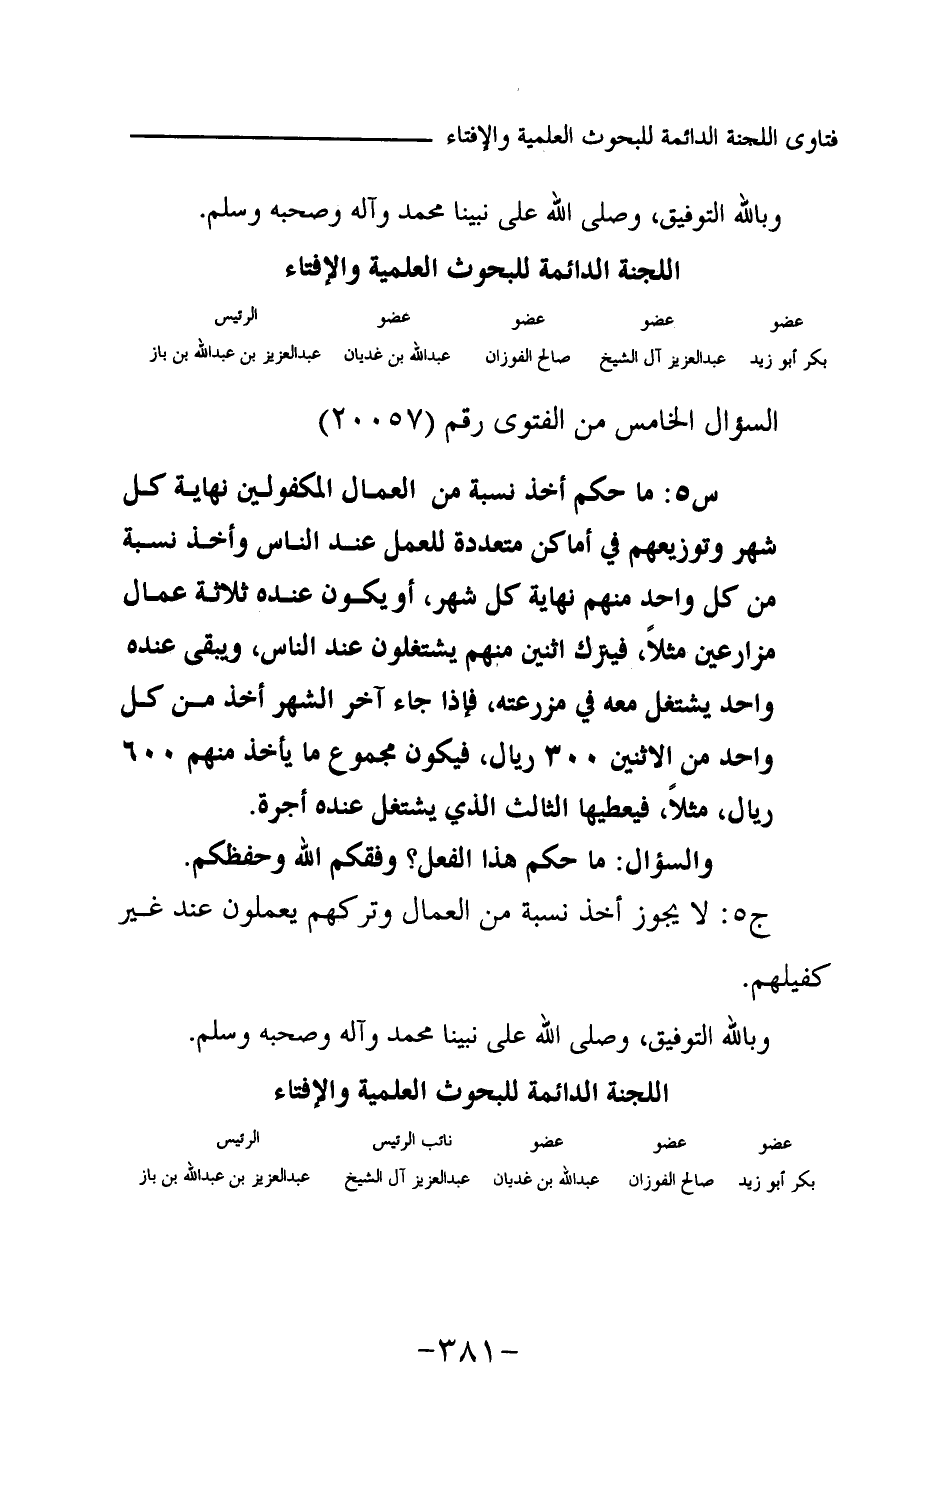 فتاوى اللجنة الدائمة للبحوث العلمية والإفتاء
وبالله التوفيق، وصلى الله على نبينا محمد وآله وصحبه وسلم.
اللجنة الدائمة للبحوث العلمية والإفتاء
عضو عضو عضو عضو الرئيس
بكر أبو زيد عبدالعزيز آل الشيخ صالح الفوزان عبدالله بن غديان عبدالعزيز بن عبدالله بن باز
السؤال الخامس من الفتوى رقم (٢٠٠٥٧)
س٥: ما حكم أخذ نسبة من العمال المكفولين نهاية كل
شهر وتوزيعهم في أماكن متعددة للعمل عند الناس وأخذ نسبة
من كل واحد منهم نهاية كل شهر، أو يكون عنده ثلاثة عمال
مزارعين مثلاً، فيترك اثنين منهم يشتغلون عند الناس، ويبقى عنده
واحد يشتغل معه في مزرعته، فإذا جاء آخر الشهر أخذ من كل
واحد من الاثنين ٣٠٠ ريال، فيكون مجموع ما يأخذ منهم ٦٠٠
ريال، مثلاً، فيعطيها الثالث الذي يشتغل عنده أجرة.
والسؤال: ما حكم هذا الفعل؟ وفقكم الله وحفظكم.
ج٥: لا يجوز أخذ نسبة من العمال وتركهم يعملون عند غير
كفيلهم.
وبالله التوفيق، وصلى الله على نبينا محمد وآله وصحبه وسلم.
اللجنة الدائمة للبحوث العلمية والإفتاء
عضو عضو عضو نائب الرئيس الرئيس
بكر أبو زيد صالح الفوزان عبدالله بن غديان عبدالعزيز آل الشيخ عبدالعزيز بن عبدالله بن باز
-٣٨١-